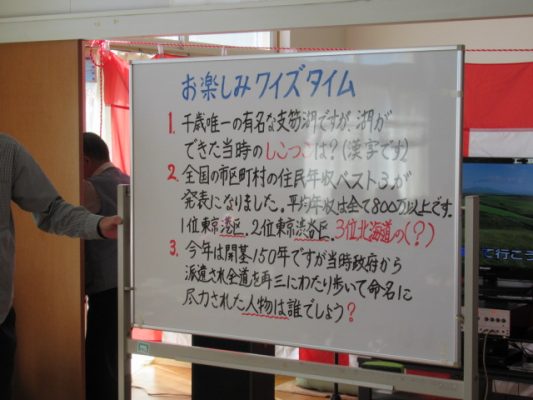 お楽しみクイズタイム
1. 千歳唯一の有名な支笏湖ですが、湖が
できた当時のしこつこは？(漢字です)
2. 全国の市区町村の住民年収ベスト3.が
発表になりました。平均年収は全て800万以上です。
1位東京港区. 2位東京渋谷区. 3位北海道の(？)
3. 今年は開基150年ですが当時政府から
派遣され全道を再三にわたり歩いて命名に
尽力された人物は誰でしょう？
て行こう